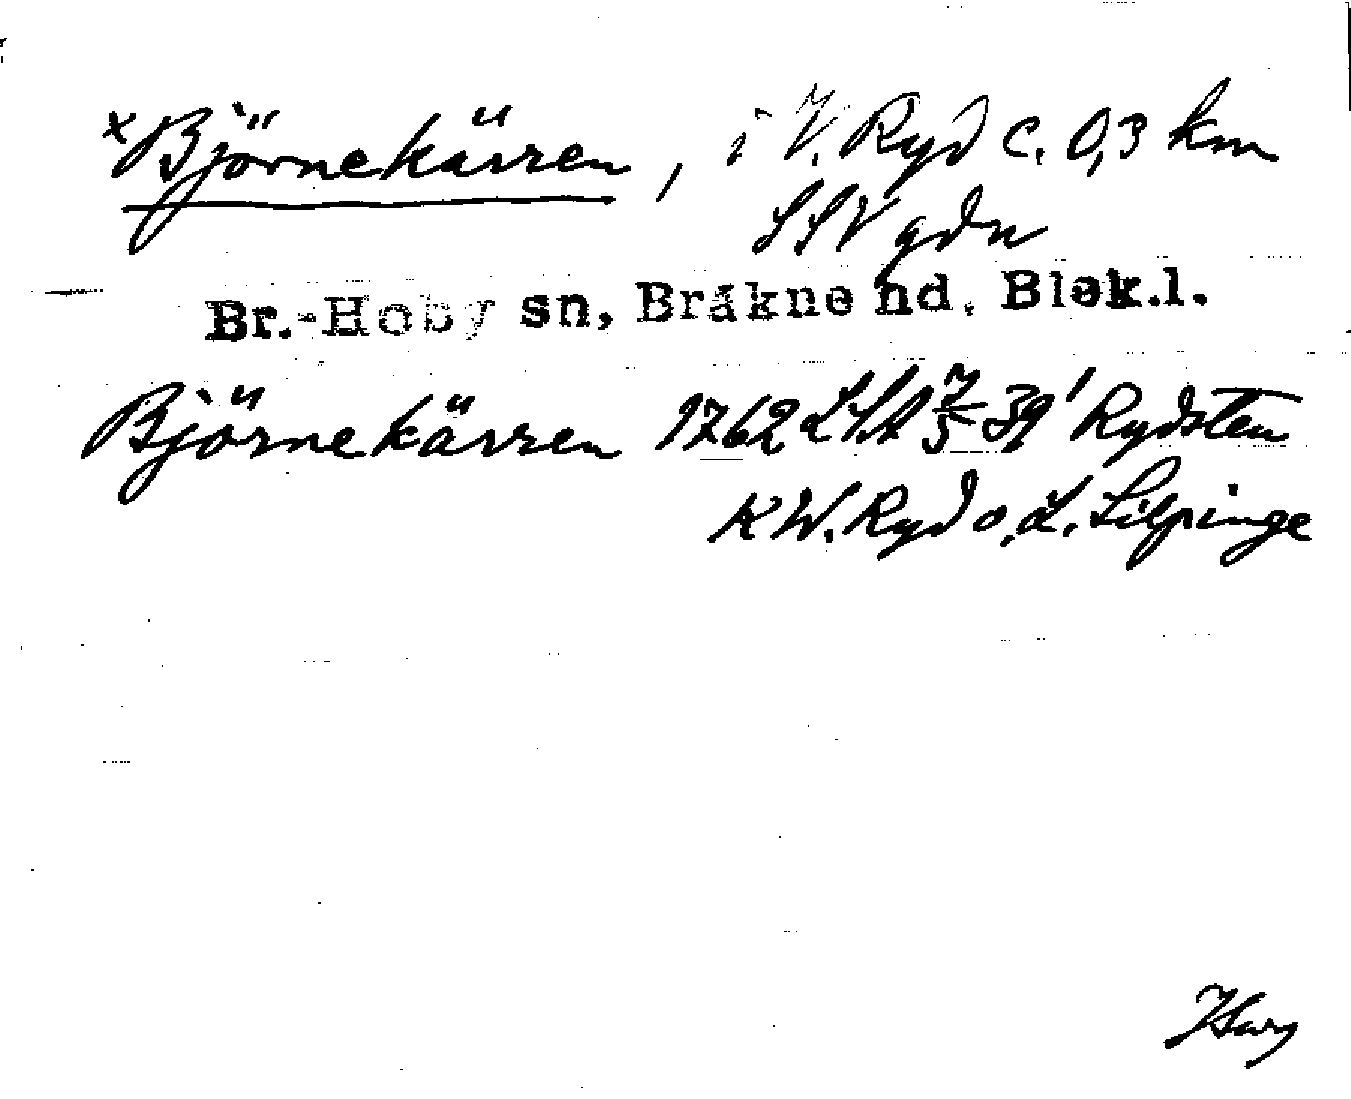 ×Björnekärren, i V. Ryd c. 0,3 km
SSV gdn
Br.-Hoby sn, Bräkne hd. Blek.l.
Björnekärren 1762 LSA 7/5 39' Rydsten
K W. Ryd o. L. Silpinge